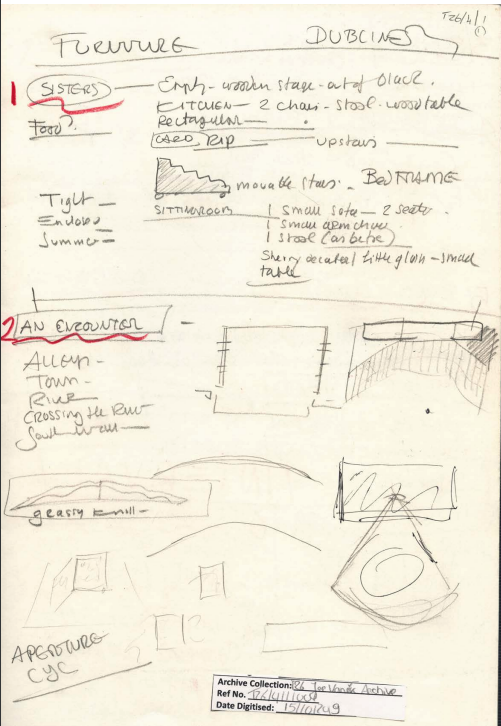 T26/4/1
(1)
FURNITURE DUBLINERS
1 SISTERS — Empty - wooden stage - out of black.
KITCHEN — 2 chairs - stool - wood table
Food? Rectagular —
CARD RIP — upstairs —
movable stairs - BED FRAME
Tight —
Enclosed
Summer —
SITTINGROOM 1 small sofa — 2 seater.
1 small armchair
1 stool (as before)
Sherry decanter / little glass - small
table
2 AN ENCOUNTER —
ALLEY -
TOWN -
River
Crossing the River
South Wall —
grassy knoll -
APERTURE
CYC
Archive Collection: T26 Joe Vanek Archive
Ref No.
Date Digitised: